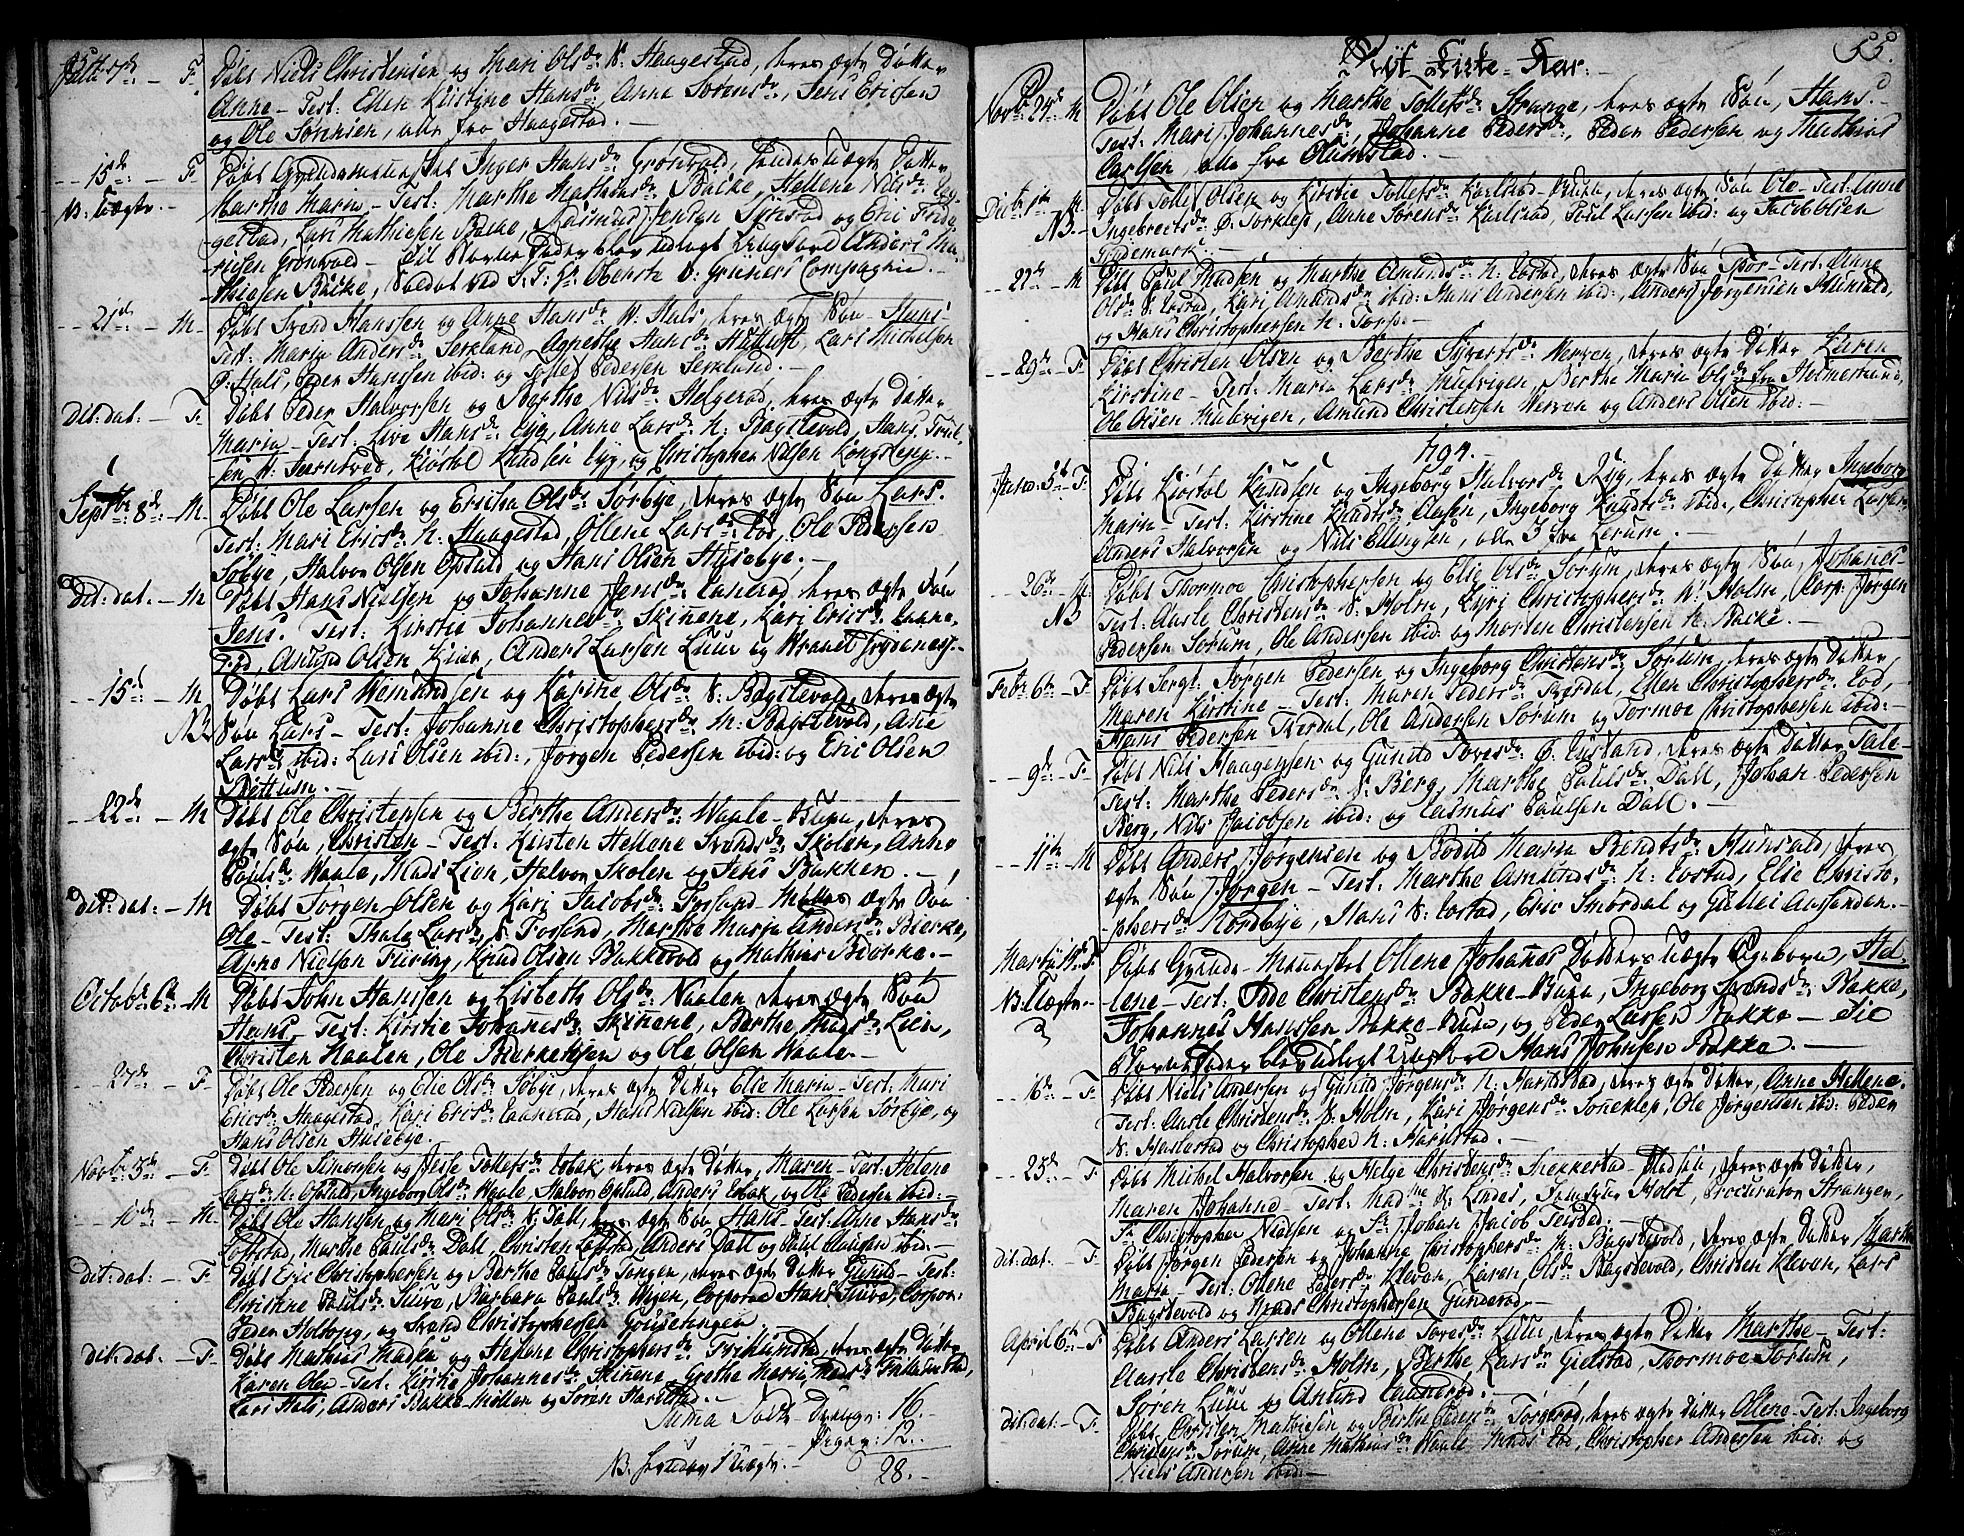 Døbt Niels Christensen og Mari Olsdr N: Haagestad, deres ægte Datter
Anne - Test: Ellen Kirstine Hansdr, Anne Sørensdr, Jens Ericsen
og Ole Sørensen, alle fra Haagestad. -
15de - F
NB: Uægte. -
Døbt Qvindemennesket Inger Hansdr Grønvold, hendes uægte Datter
Marthe Maria - Test: Marthe Mathisdr Backe, Hellene Nilsdr
gestad, Lars Mathiesen Backe, Jensen og Eric
Grønvold - til Barne Fader blev udlagt Ungkarl Anders
thiesen Backe, Soldat ved Oberste V: Grüners Compagnie. -
21de - M
Døbt Svend Hanssen og Anne Hansdr N: Hals, deres ægte Søn Hans -
Test: Maria Andersdr Serkland, Agnethe Hansdr, Lars Michelsen
Ø: Hals, Peder Hanssen ibid: og Tollef Pedersen Serklund. -
Dit: dat: - F
Døbt Peder Halvorsen og Berthe Nilsdr Helgerød, deres ægte Datter
Maria - Test: Live Hansdr Eyg, Anne Larsdr N: Bagstevold, Hans
Kiøstol Knudsen Eyg, og Christopher Nilsen Kongsteng. -
Septbr 8de - M
Døbt Ole Larsen og Ericha Olsdr Sørbye, deres ægte Søn Lars.
Test: Mari Ericsdr N: Haagestad, Ollene Larsdr Eod, Ole Pedersen
Søbye, Halvor Olsen Opstad og Hans Olsen Husebye. -
Dit: dat: - M
Døbt Hans Nielsen og Johanne Jensdr Lannerød, deres ægte Søn
Jens. Test: Kirstie Johannesdr Skinnene, Kari Ericsdr
Amund Olsen Kiær, Anders Larsen Luur og
15de - M
NB.
Døbt Lars Wemundsen og Karine Olsdr S: Bagstevold, deres ægte
Søn Lars - Test: Johanne Christophersdr M: Bagstevold, Anne
Larsdr ibid: Lars Olsen ibid:, Jørgen Pedersen ibid: og Eric Olsen
Røttum. -
22de - M
Døbt Ole Christensen og Berthe Andersdr Waale - Bøen, deres
ægte Søn, Christen - Test: Kirsten Hellene Svendsdr Skolen, Anne
Paulsdr Waale, Mads Lien, Halvor Skolen og Jens Bakken. -
Dit: dat: - M
Døbt Jørgen Olsen og Kari Jacobsdr Fosland - ægte Søn
Ole - Test: Thale Larsdr S: Fosland, Marthe Maria Andersdr Biercke,
Arne Nielsen, Knud Olsen Bakkevold og Mathias Biørke. -
Octobr 6te M
Døbt John Hanssen og Lisbeth Olsdr Naalen, deres ægte Søn
Hans - Test: Kirstie Johannesdr Skinnene, Berthe Madsdr Lien,
Christen Naalen, Ole og Ole Olsen Waale -
27de - F
Døbt Ole Pedersen og Elie Olsdr Søbye, deres ægte Datter Elie Maria - Test: Mari
Ericsdr Haagestad, Kari Ericsdr Lannerød, Hans Nielsen ibid: Ole Larsen Sørbye, og
Hans Olsen Husebye. -
Novbr 3de - F
Døbt Ole Simonsen og Jesse Tollefsdr Esbak, deres ægte Datter, Maren - Test: Helene
Larsdr N: Opstad, Ingeborg Olsdr Waale, Halvor Opstad, Anders Esbak, og Ole Pedersen ibid:
10de - M
Døbt Ole Hanssen og Mari Olsdr S: Dall, deres ægte Søn Hans - Test: Anne Hansdr
Loftstad, Marthe Paulsdr Dall, Christen Loftstad, Anders Dall og Paul Clausen ibid:
Dit: dat: - F
Døbt Eric Christophersen og Berthe Paulsdr Tangen, deres ægte Datter Gunild - Test:
Christine Paulsdr, Barbara Paulsdr, Corporal Hans, Corpor:
Peder Holtbye, og Svend Christophersen
Dit: dat: - F
Døbt Mathias Madsen og Hellene Christophersdr, deres ægte Datter
Karen Olea - Test: Kirstie Johannesdr Skinnene, Grethe Maria
Lars Hals, Anders Bakke - Møllen og Søren Haristad. -
Suma Døbte - Drenge: 16.
Piger: 12.
28.
55.
Nyt Kirke - Aar. -
Novbr 24de M
Døbt Ole Olsen og Marthe Tollefsdr Strange, deres ægte Søn, Hans.
Test: Mari Johannesdr, Johanne Pedersdr, Peder Pedersen og Mathias
Carlsen, alle fra Olumstad. -
Decbr 1te M
NB -
Døbt Tollef Olsen og Kirstie Tollefsdr Karlstad - Bøen, deres ægte Søn Ole - Test: Anne
Ingebretsdr Ø: Torklep, Anne Sørensdr Karlstad, Paul Larssen ibid: og Jacob Olsen
22de - M
Døbt Paul Madsen og Marthe Amundsdr N: Eostad, deres ægte Søn Thor - Test: Anne
Olsdr S: Eostad, Kari Amundsdr ibid: Hans Andersen ibid:, Anders Jørgensen Hunsald,
og Hans Christophersen N: Torp. -
29de - F
Døbt Christen Olsen og Berthe Siverts dr Werven, deres ægte Datter Karen
Kirstine - Test: Maria Larsdr Mulvigen, Berthe Maria Olsdr fra Holmestrand,
Ole Olsen Mulvigen, Amund Christensen Werven og Anders Olsen ibid: -
1794.
Janv: 5te - F
Døbt Kiøstol Knudsen og Ingeborg Halvorsdr Eyg, deres ægte Datter Ingeborg
Maria - Test: Kirstine Knudsdr Claasen, Ingeborg Knudsdr ibid:, Christopher Larsen,
Anders Halvorsen og Nils Ellingsen, alle 3 fra Lerum. -
26de - M
NB
Døbt Thormoe Christophersen og Elie Olsdr Sørum, deres ægte Søn, Johannes -
Test: Aasle Christensdr S: Holm, Eyri Christophersdr N: Holm, Corp: Jørgen
Pedersen Sørum, Ole Andersen ibid: og Morten Christensen N: Backe. -
Febr: 6te - F
Døbt Sergt: Jørgen Pedersen og Ingeborg Christensdr Sørum, deres ægte Datter
Maren Kirstine - Test: Maren Pedersdr Tverdal, Ellen Christophersdr Eod,
Hans Pedersen Tverdal, Ole Andersen Sørum og Tormoe Christophersen ibid: -
9de - F
Døbt Nils Haagensen og Gunild Toresdr Ø: Justand, deres ægte Datter Tale -
Test: Marthe Pedersdr S: Berg, Marthe Paulsdr Dall, Johan Pedersen
Berg, Nils Jacobsen ibid: og Rasmus Paulsen Dall. -
11te - M
Døbt Anders Jørgensen og Bodild Maria Bendtsdr Hunsald, deres
ægte Søn Jørgen - Test: Marthe Amundsdr N: Eostad, Elie Christo-
phersdr Nordbye, Hans S: Eostad, Eric Smørdal og Gullei Aassanden. -
NB: Uægte -
Døbt Qvinde - Mennesket Ollene Johannes Datters uægte Pigebarn, Hel-
lene - Test: Ode Christensdr Bakke - Bøen, Ingeborg Svendsdr Bakke,
Johannes Hanssen Bakke - Bøen, og Peder Larsen Bakke - Til
Barne Fader blev udlagt Ungkarl Hans Johnsen Bakke. -
16de - F
Døbt Niels Andersen og Gunild Jørgensdr N: Haristad, deres ægte Datter, Anne Hellene.
Test: Aasle Christensdr S: Holm, Kari Jørgensdr Soneklep, Ole Jørgensen ibid: Peder
S: Haslestad og Christopher N: Haristad. -
25de - F
Døbt Mikkel Halvorsen og Helge Christensdr Snekkestad - Pladsen, deres ægte Datter,
Maren Johanne - Test: Madme S: Lindes, Jomfrue Holst, Procurator Strangen,
Sr Christopher Nielsen og Sr Johan Jacob Teisted.
Dit: dat: - F
Døbt Jørgen Pedersen og Johanne Christophersdr N: Bagstevold, deres ægte Datter Marthe
Maria - Test: Ollene Pedersdr Klevan, Karen Olsdr Bagstevold, Christen Klevan, Lars
Bagstevold og Mads Christophersen Gunderød. -
April 6te F
Døbt Anders Larsen og Ollene Toresdr Luur, deres ægte Datter Marthe - Test:
Aasle Christensdr Holm, Berthe Larsdr Gielstad, Thormoe Sørum,
Søren Luur og Amund Lannerød. -
Dit: dat: - F
Døbt Christen Mathiesen og Berthe Pedersdr Torgerød, deres ægte Datter Ollene - Test: Ingeborg
Christensdr Sørum, Anne Mathiasdr Waale, Mads Eod, Christopher Andersen ibid: og
Niels Andersen ibid: -